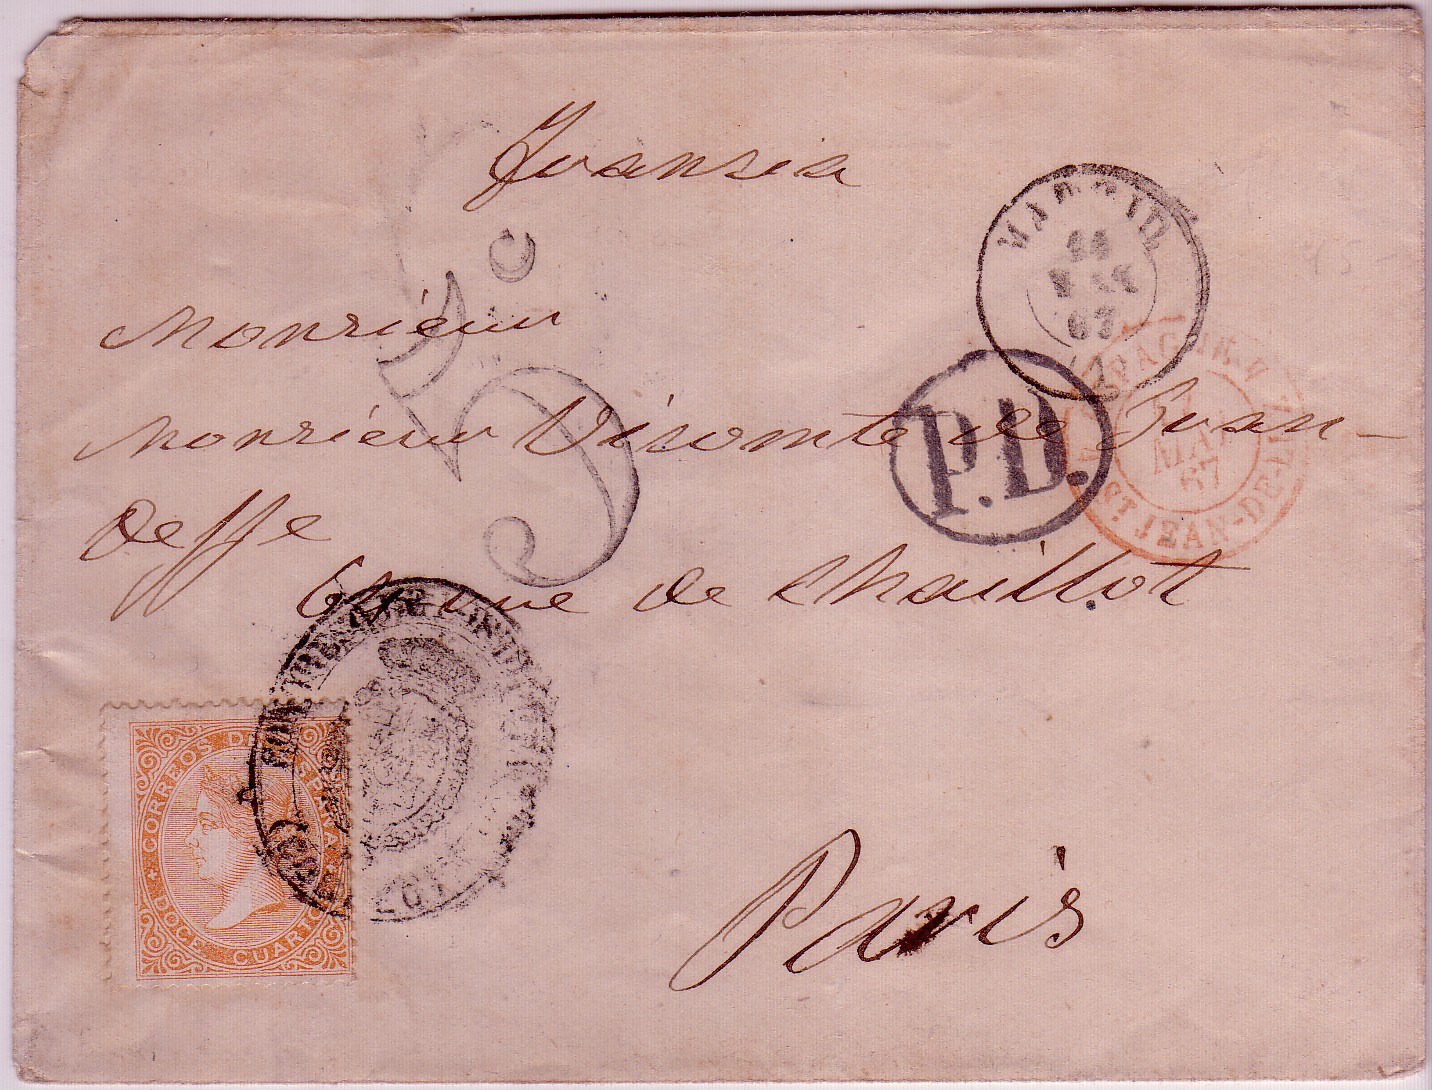 Fransia
MADRID
14
MAR
67
5
Monsieur
Monsieur Visomte de Gran-
deffe
rue de Chaillot
P.D.
ESPAGNE
MARS
67
ST JEAN-DE-LUZ
CORREOS DE ESPAÑA
DOCE CUARTOS
Paris